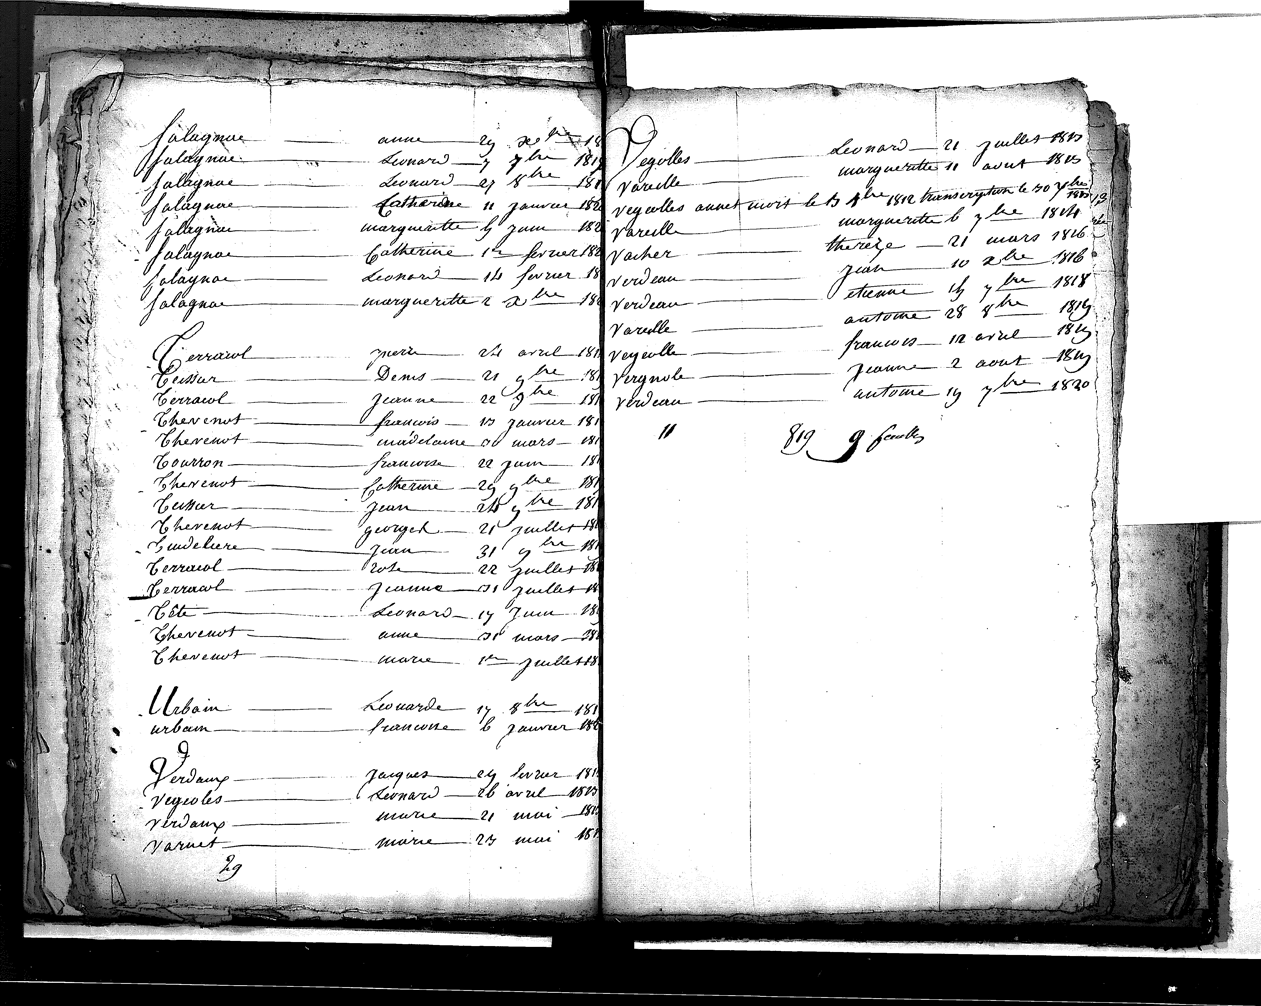 Salagnac anne 29 xbre 18
Salagnac Leonard 7 7bre 181
Salagnac Leonard 27 8bre 181
Salagnac Catherine 11 janvier 182
Salagnac margueritte 19 juin 182
Salagnac Catherine 1er fevrier 182
Salagnac Leonard 14 fevrier 18
Salagnac margueritte 2 xbre 18
Terracol 24 avril 181
Teissier Denis 21 9bre 181
Terracol jeanne 22 9bre 181
Thevenot francois 13 janvier 181
Thevenot madelaine 30 mars 181
Tourron francoise 22 juin 181
Thevenot Catherine 29 9bre 181
Teissier jean 24 9bre 181
Thevenot georges 21 juillet 181
jean 31 9bre 181
Terracol rose 22 juillet 18
Terracol jeanne 31 juillet 18
Tête Leonard 17 juin 18
Thevenot anne 31 mars 18
Thevenot marie 1er juillet 18
Urbain Leonarde 17 8bre 181
urbain francoise 6 janvier 18
Verdaux jacques 29 fevrier 181
vegeoles Leonard 26 avril 1813
verdaux marie 21 mai 181
varnet marie 23 mai 181
29
Vegolles Leonard 21 juillet 1813
vareille margueritte 11 aout 1813
vegeolles annet mort le 13 1812 transcription le 30 7bre 1813
vareille margueritte 6 7bre 1814
vacher thereze 21 mars 1816
verdeau jean 10 xbre 1816
verdeau etienne 19 7bre 1818
vareille antoine 28 8bre 1819
vegeolle francois 12 avril 1819
vergnole jeanne 2 aout 1819
verdeau antoine 19 7bre 1820
11 819 9 feuilles